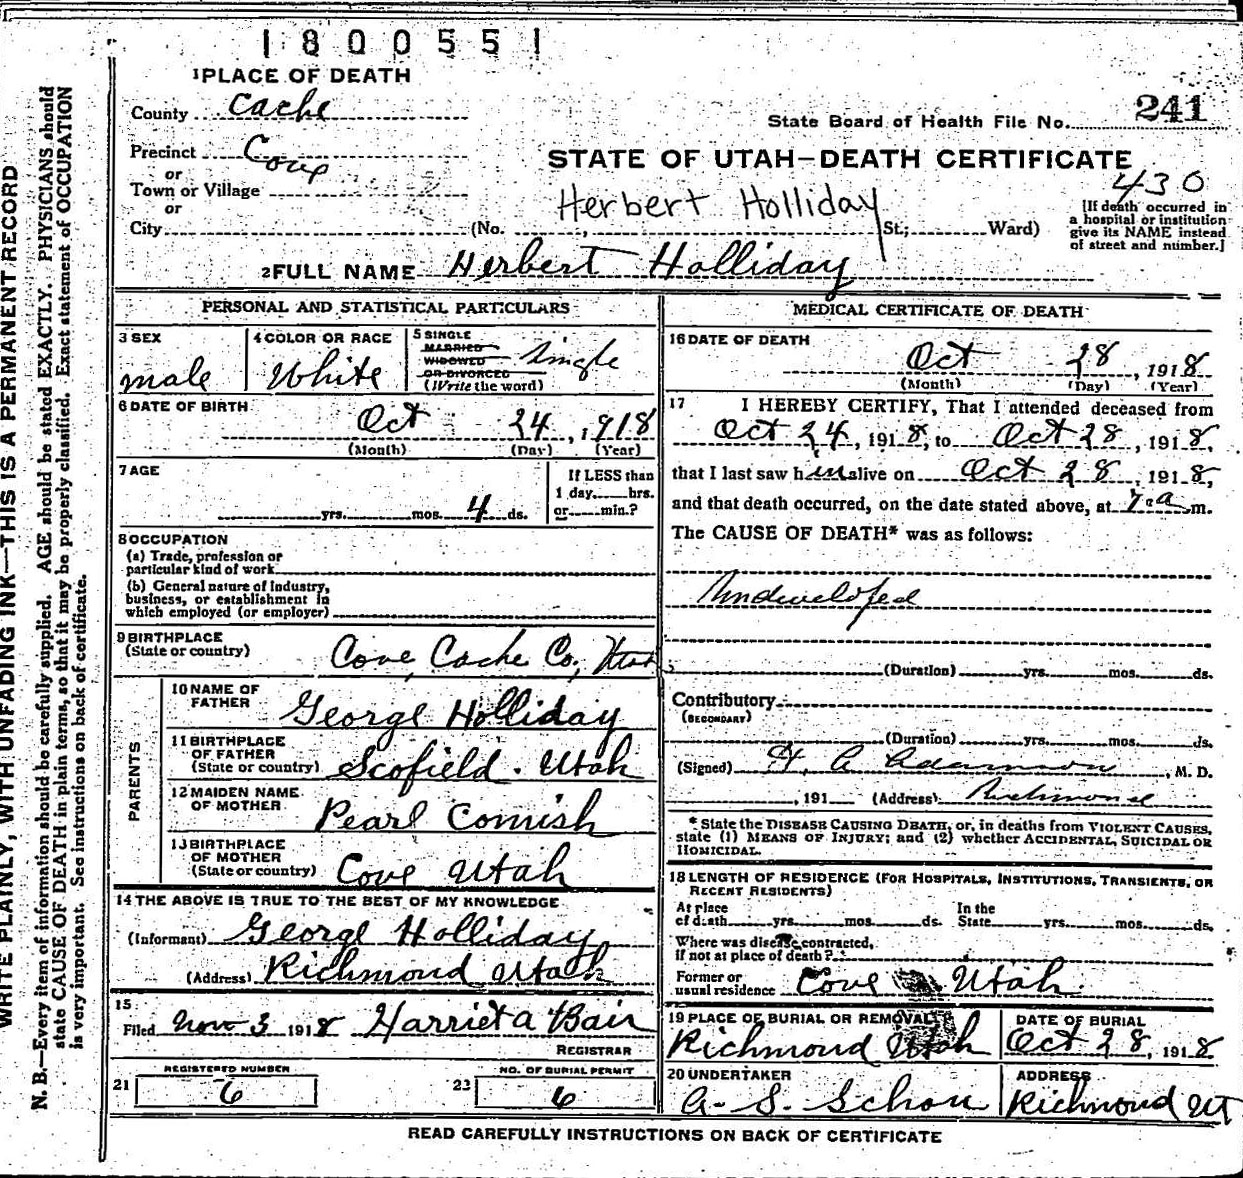 1800551
1 PLACE OF DEATH
County Cache
State Board of Health File No. 241
Precinct Cove
or
Town or Village
or
City
STATE OF UTAH—DEATH CERTIFICATE
430
Herbert Holliday
(No. , St.; Ward)
[If death occurred in
a hospital or institution
give its NAME instead
of street and number.]
2 FULL NAME Herbert Holliday
PERSONAL AND STATISTICAL PARTICULARS
3 SEX
male
4 COLOR OR RACE
White
5 SINGLE
MARRIED
WIDOWED
OR DIVORCED
(Write the word)
Single
6 DATE OF BIRTH
Oct 24, 1918
(Month) (Day) (Year)
7 AGE
yrs. mos. 4 ds.
If LESS than
1 day hrs.
or min.?
8 OCCUPATION
(a) Trade, profession or
particular kind of work
(b) General nature of industry,
business, or establishment in
which employed (or employer)
9 BIRTHPLACE
(State or country)
Cove, Cache Co, Utah
PARENTS
10 NAME OF
FATHER
George Holliday
11 BIRTHPLACE
OF FATHER
(State or country)
Scofield. Utah
12 MAIDEN NAME
OF MOTHER
Pearl Cornish
13 BIRTHPLACE
OF MOTHER
(State or country)
Cove Utah
14 THE ABOVE IS TRUE TO THE BEST OF MY KNOWLEDGE
(Informant) George Holliday
(Address) Richmond Utah
15
Filed Nov 3 1918 Harriet A Bair
REGISTRAR
21 REGISTERED NUMBER
6
23 NO. OF BURIAL PERMIT
6
MEDICAL CERTIFICATE OF DEATH
16 DATE OF DEATH
Oct 28, 1918
(Month) (Day) (Year)
17 I HEREBY CERTIFY, That I attended deceased from
Oct 24, 1918, to Oct 28, 1918,
that I last saw him alive on Oct 28, 1918,
and that death occurred, on the date stated above, at 7 a m.
The CAUSE OF DEATH* was as follows:
Undeveloped
(Duration) yrs. mos. ds.
Contributory
(SECONDARY)
(Duration) yrs. mos. ds.
(Signed) H. A Adamson, M. D.
, 191 (Address) Richmond
* State the DISEASE CAUSING DEATH, or, in deaths from VIOLENT CAUSES,
state (1) MEANS OF INJURY; and (2) whether ACCIDENTAL, SUICIDAL OR
HOMICIDAL.
18 LENGTH OF RESIDENCE (FOR HOSPITALS, INSTITUTIONS, TRANSIENTS, OR
RECENT RESIDENTS)
At place
of death yrs. mos. ds.
In the
State yrs. mos. ds.
Where was disease contracted,
if not at place of death?
Former or
usual residence Cove Utah.
19 PLACE OF BURIAL OR REMOVAL
Richmond Utah
DATE OF BURIAL
Oct 28, 1918
20 UNDERTAKER
A. S. Schow
ADDRESS
Richmond UT
READ CAREFULLY INSTRUCTIONS ON BACK OF CERTIFICATE
WRITE PLAINLY, WITH UNFADING INK—THIS IS A PERMANENT RECORD
N. B.—Every item of information should be carefully supplied. AGE should be stated EXACTLY. PHYSICIANS should
state CAUSE OF DEATH in plain terms, so that it may be properly classified. Exact statement of OCCUPATION
is very important. See instructions on back of certificate.